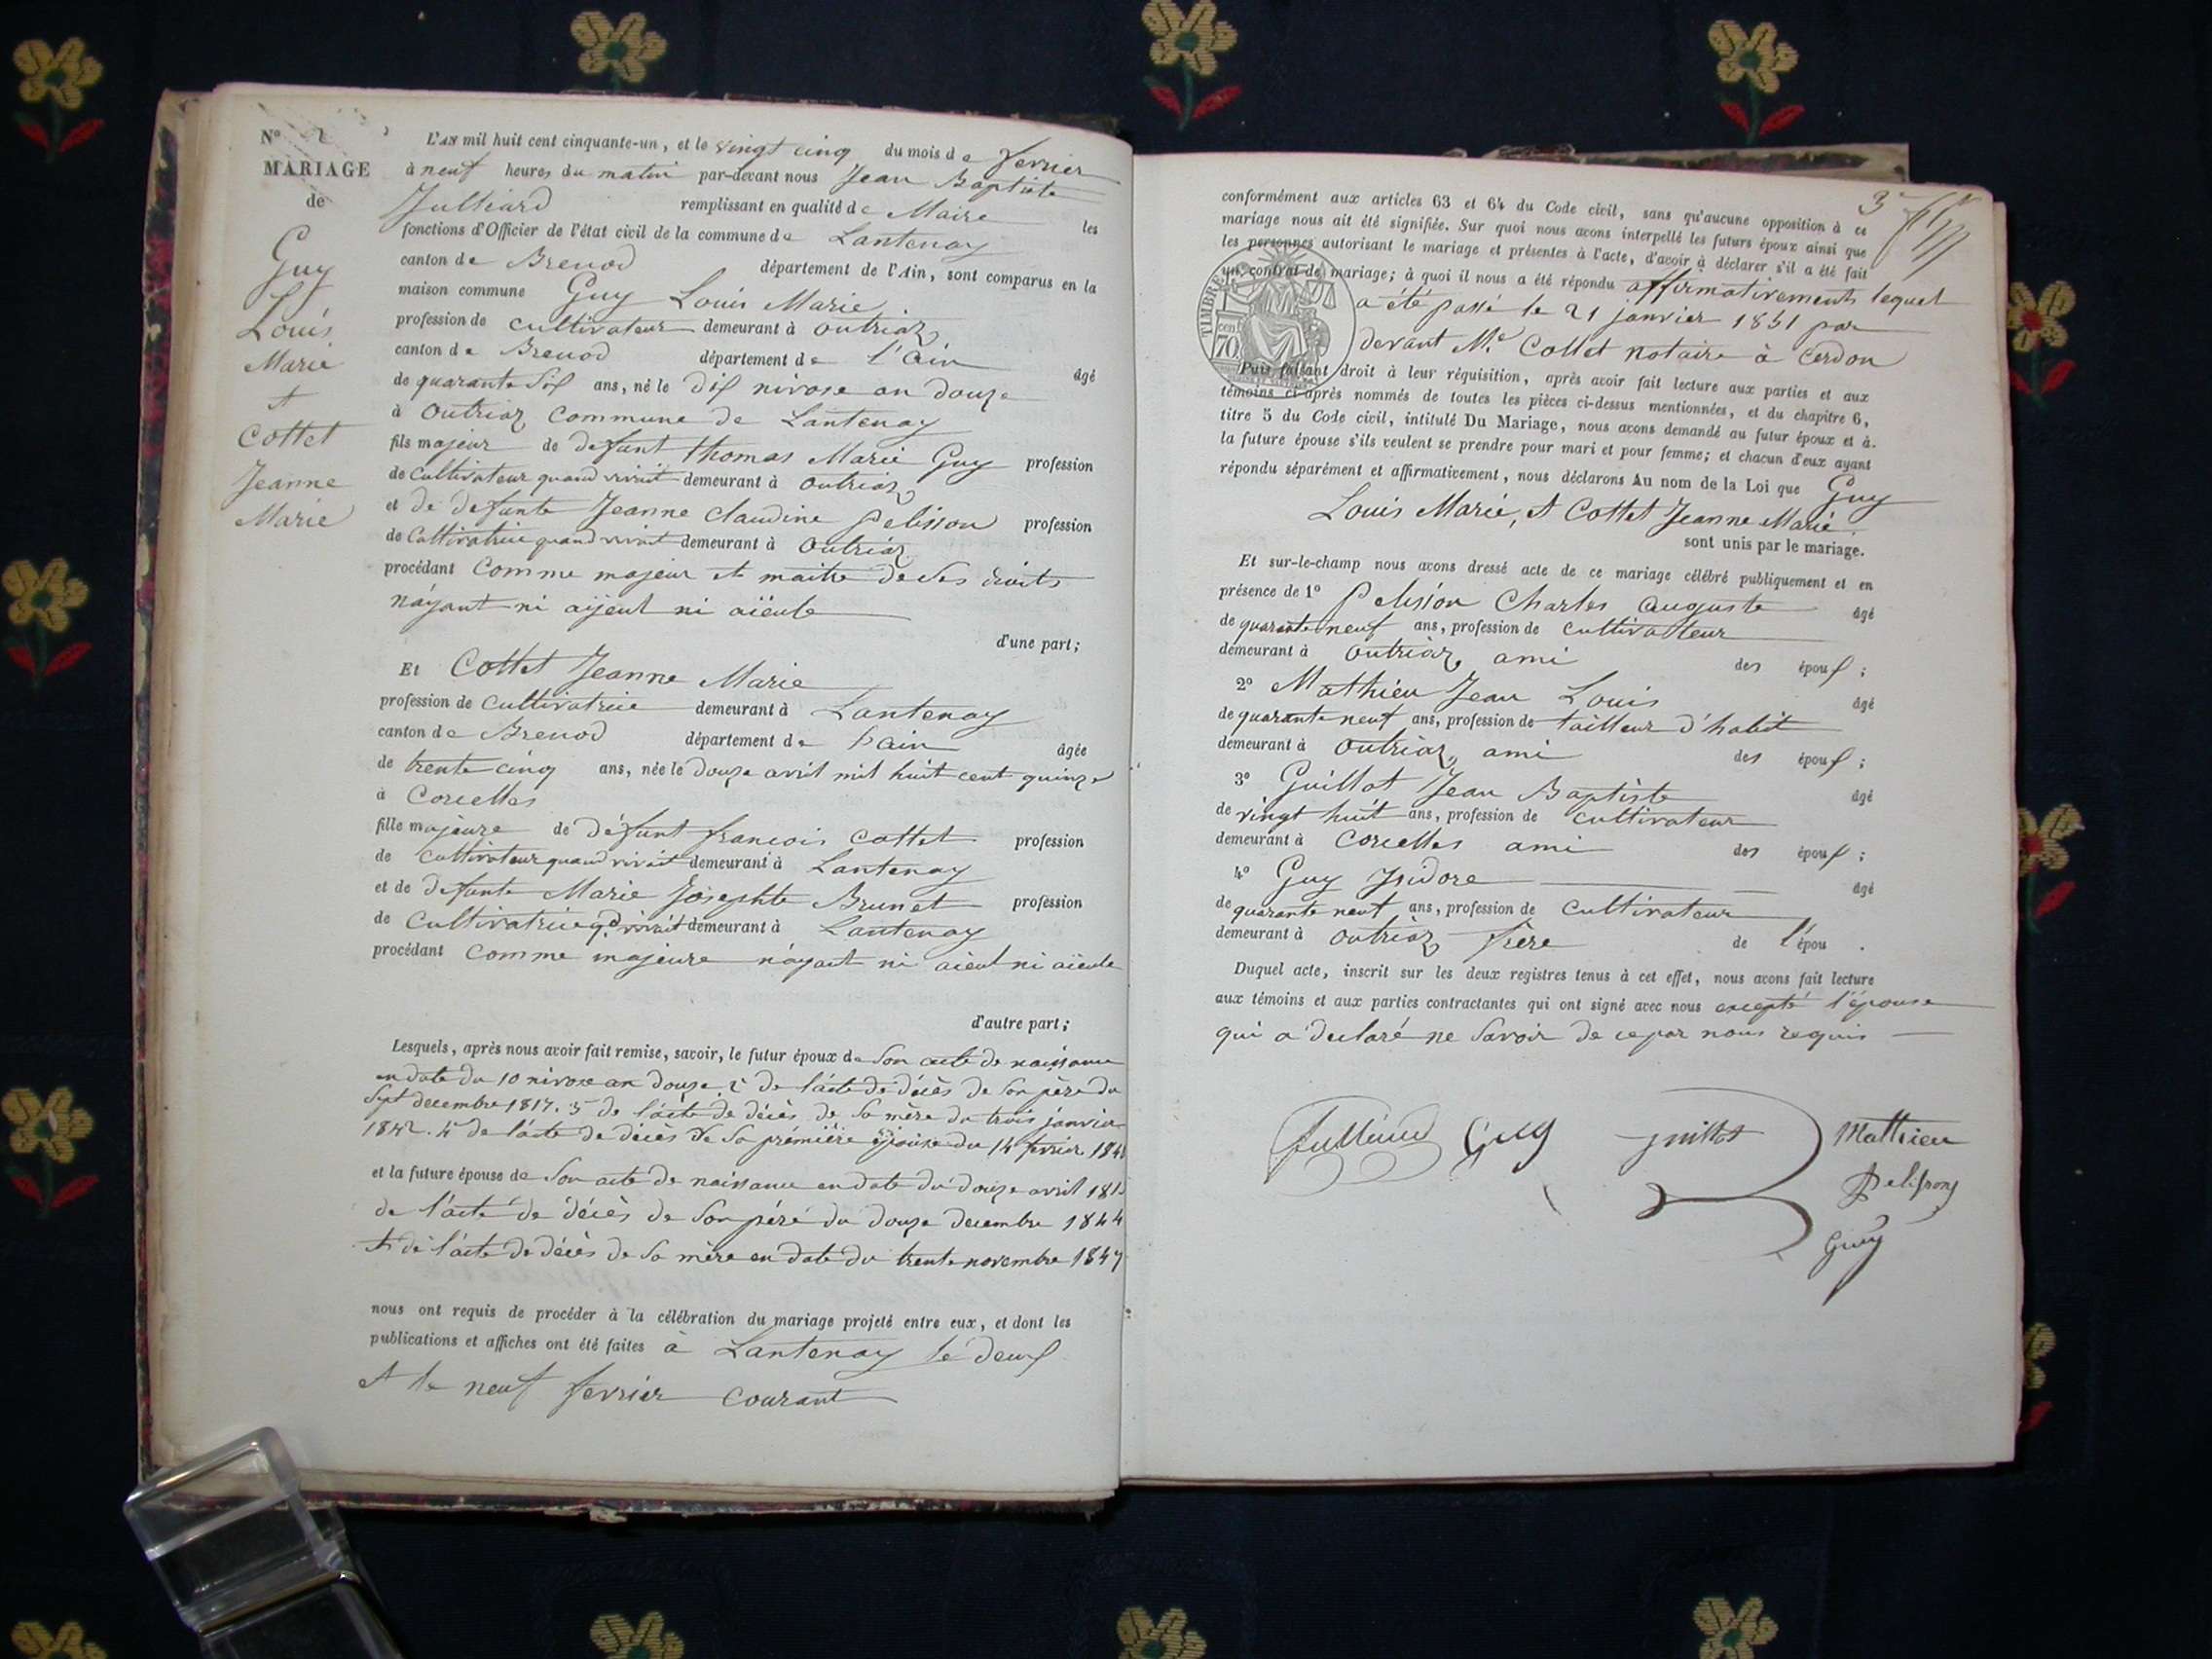 N° 2
MARIAGE
de
Guy
Louis
Marie
et
Cottet
Jeanne
Marie
L'AN mil huit cent cinquante-un, et le vingt cinq du mois de fevrier
à neuf heures du matin par-devant nous Jean Baptiste
Julliard remplissant en qualité de Maire les
fonctions d'Officier de l'état civil de la commune de Lantenay
canton de Brenod département de l'Ain, sont comparus en la
maison commune Guy Louis Marie
profession de cultivateur demeurant à outriaz
canton de Brenod département de l'ain âgé
de quarante Sept ans, né le dix nivose an douze
à Outriaz commune de Lantenay
fils majeur de defunt thomas Marie Guy profession
de cultivateur quand vivait demeurant à outriaz
et de defunte Jeanne claudine Pelisson profession
de Cultivatrice quand vivait demeurant à Outriaz
procédant Comme majeur et maitre de Ses droits
n'ayant ni aijeul ni aïeule
d'une part;
Et Cottet Jeanne Marie
profession de Cultivatrice demeurant à Lantenay
canton de Brenod département de l'ain âgée
de trente cinq ans, née le douze avril mil huit cent quinze
à Corcelles
fille majeure de défunt francois Cottet profession
de Cultivateur quand vivait demeurant à Lantenay
et de defunte Marie Josephte Brunet profession
de Cultivatrice qd vivait demeurant à Lantenay
procédant Comme majeure n'ayant ni aieul ni aïeule
d'autre part;
Lesquels, après nous avoir fait remise, savoir, le futur époux de Son acte de naissance
en date du 10 nivose an douze 2° de l'acte de décès de Son père du
Sept decembre 1817. 3° de l'acte de décès de Sa mère du trois janvier
1842. 4° de l'acte de décès de Sa première épouse du 14 fevrier
et la future épouse de Son acte de naissance en date du douze avril 1815
de l'acte de décès de Son père du douze decembre 1844
et de l'acte de décès de Sa mère en date du trente novembre 1847
nous ont requis de procéder à la célébration du mariage projeté entre eux, et dont les
publications et affiches ont été faites à Lantenay le deux
et le neuf fevrier courant
3
conformément aux articles 63 et 64 du Code civil, sans qu'aucune opposition à ce
mariage nous ait été signifiée. Sur quoi nous avons interpellé les futurs époux ainsi que
les personnes autorisant le mariage et présentes à l'acte, d'avoir à déclarer s'il a été fait
un contrat de mariage; à quoi il nous a été répondu affirmativement lequel
a été passé le 21 janvier 1851 par
devant Me Collet notaire à Cerdon
TIMBRE
70 cen
Puis faisant droit à leur réquisition, après avoir fait lecture aux parties et aux
témoins ci-après nommés de toutes les pièces ci-dessus mentionnées, et du chapitre 6,
titre 5 du Code civil, intitulé Du Mariage, nous avons demandé au futur époux et à
la future épouse s'ils veulent se prendre pour mari et pour femme; et chacun d'eux ayant
répondu séparément et affirmativement, nous déclarons Au nom de la Loi que Guy
Louis Marie, et Cottet Jeanne Marie
sont unis par le mariage.
Et sur-le-champ nous avons dressé acte de ce mariage célébré publiquement et en
présence de 1° Pelission Charles auguste âgé
de quarante neuf ans, profession de cultivateur
demeurant à outriaz, ami des époux;
2° Mathieu Jean Louis âgé
de quarante neuf ans, profession de tailleur d'habit
demeurant à Outriaz, ami des époux;
3° Guillot Jean Baptiste âgé
de vingt huit ans, profession de cultivateur
demeurant à Corcelles ami des époux;
4° Guy Isidore âgé
de quarante neuf ans, profession de Cultivateur
demeurant à Outriaz, frère de l'épou.
Duquel acte, inscrit sur les deux registres tenus à cet effet, nous avons fait lecture
aux témoins et aux parties contractantes qui ont signé avec nous excepté l'épouse
qui a déclaré ne Savoir de ce par nous requis
Julliard Guy guillot Mathieu
Pelisson
Guy